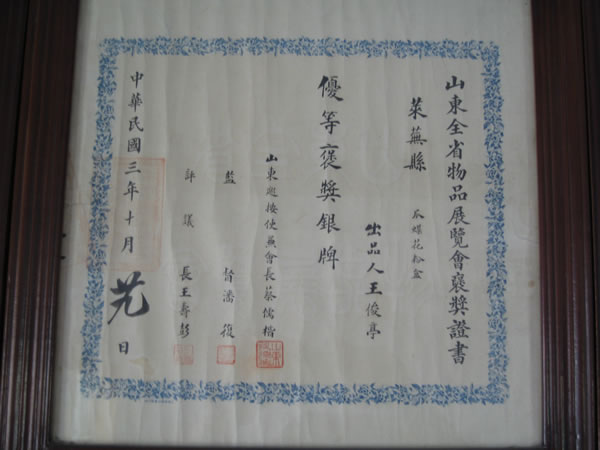 山東全省物品展覽會褒獎證書
萊蕪縣 瓜蝶花松盆
出品人王俊亭
優等褒獎銀牌
山東巡按使兼會長蔡儒楷
監督潘復
評議長王壽彭
中華民國三年十月 日